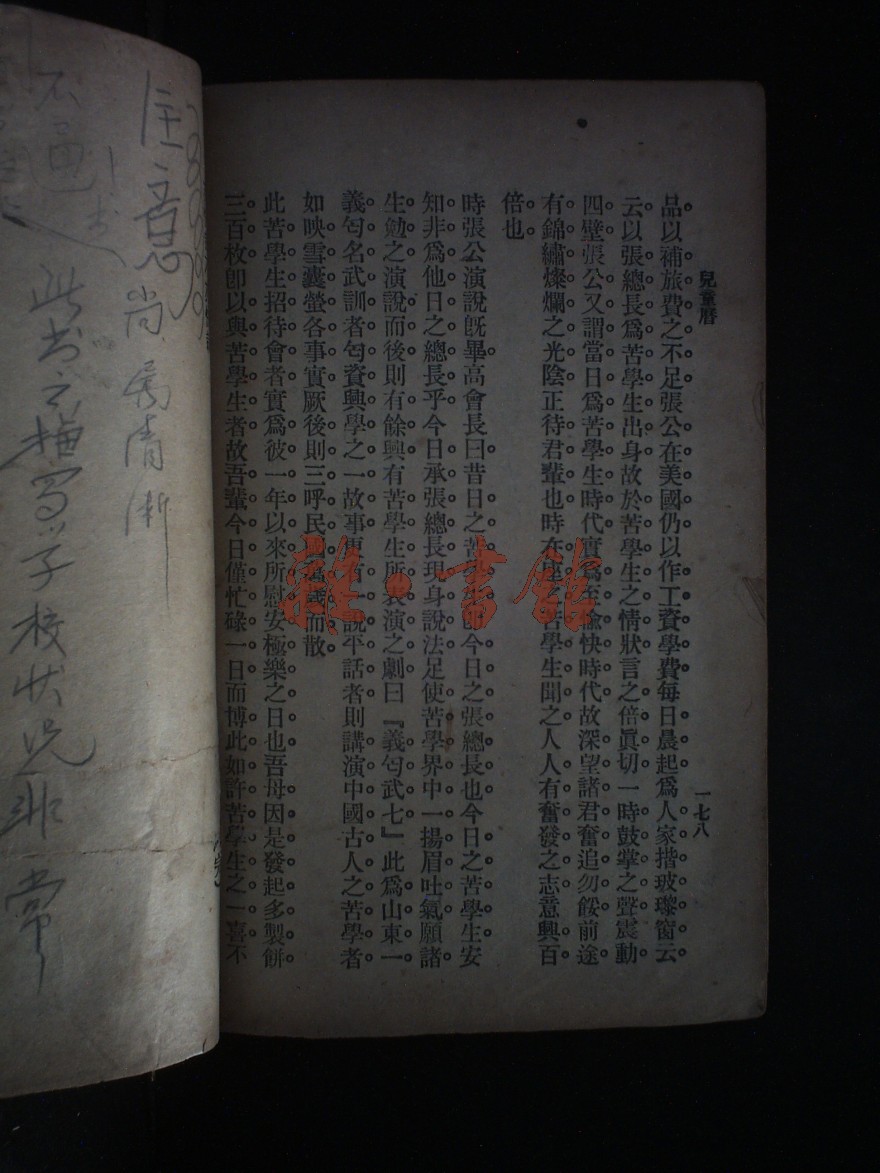 兒童曆
一七八
品以補旅費之不足張公在美國仍以作工資學費每日晨起爲人家揩玻瓈窗云
云以張總長爲苦學生出身故於苦學生之情狀言之倍眞切一時鼓掌之聲震動
四壁張公又謂當日爲苦學生時代實爲至愉快時代故深望諸君奮追勿餒前途
有錦繡燦爛之光陰正待君輩也時在座之苦學生聞之人人有奮發之志意興百
倍也
時張公演說旣畢高會長曰昔日之苦學生卽今日之張總長也今日之苦學生安
知非爲他日之總長乎今日承張總長現身說法足使苦學界中一揚眉吐氣願諸
生勉之演說而後則有餘興有苦學生所表演之劇曰『義匄武七』此爲山東一
義匄名武訓者匄資興學之一故事更有一說平話者則講演中國古人之苦學者
如映雪囊螢各事實厥後則三呼民國萬歲而散
此苦學生招待會者實爲彼一年以來所慰安極樂之日也吾母因是發起多製餅
三百枚卽以與苦學生者故吾輩今日僅忙碌一日而博此如許苦學生之一喜不
雜·書館
注意
尚屬清晰
不過
此書之描寫學校狀況非常